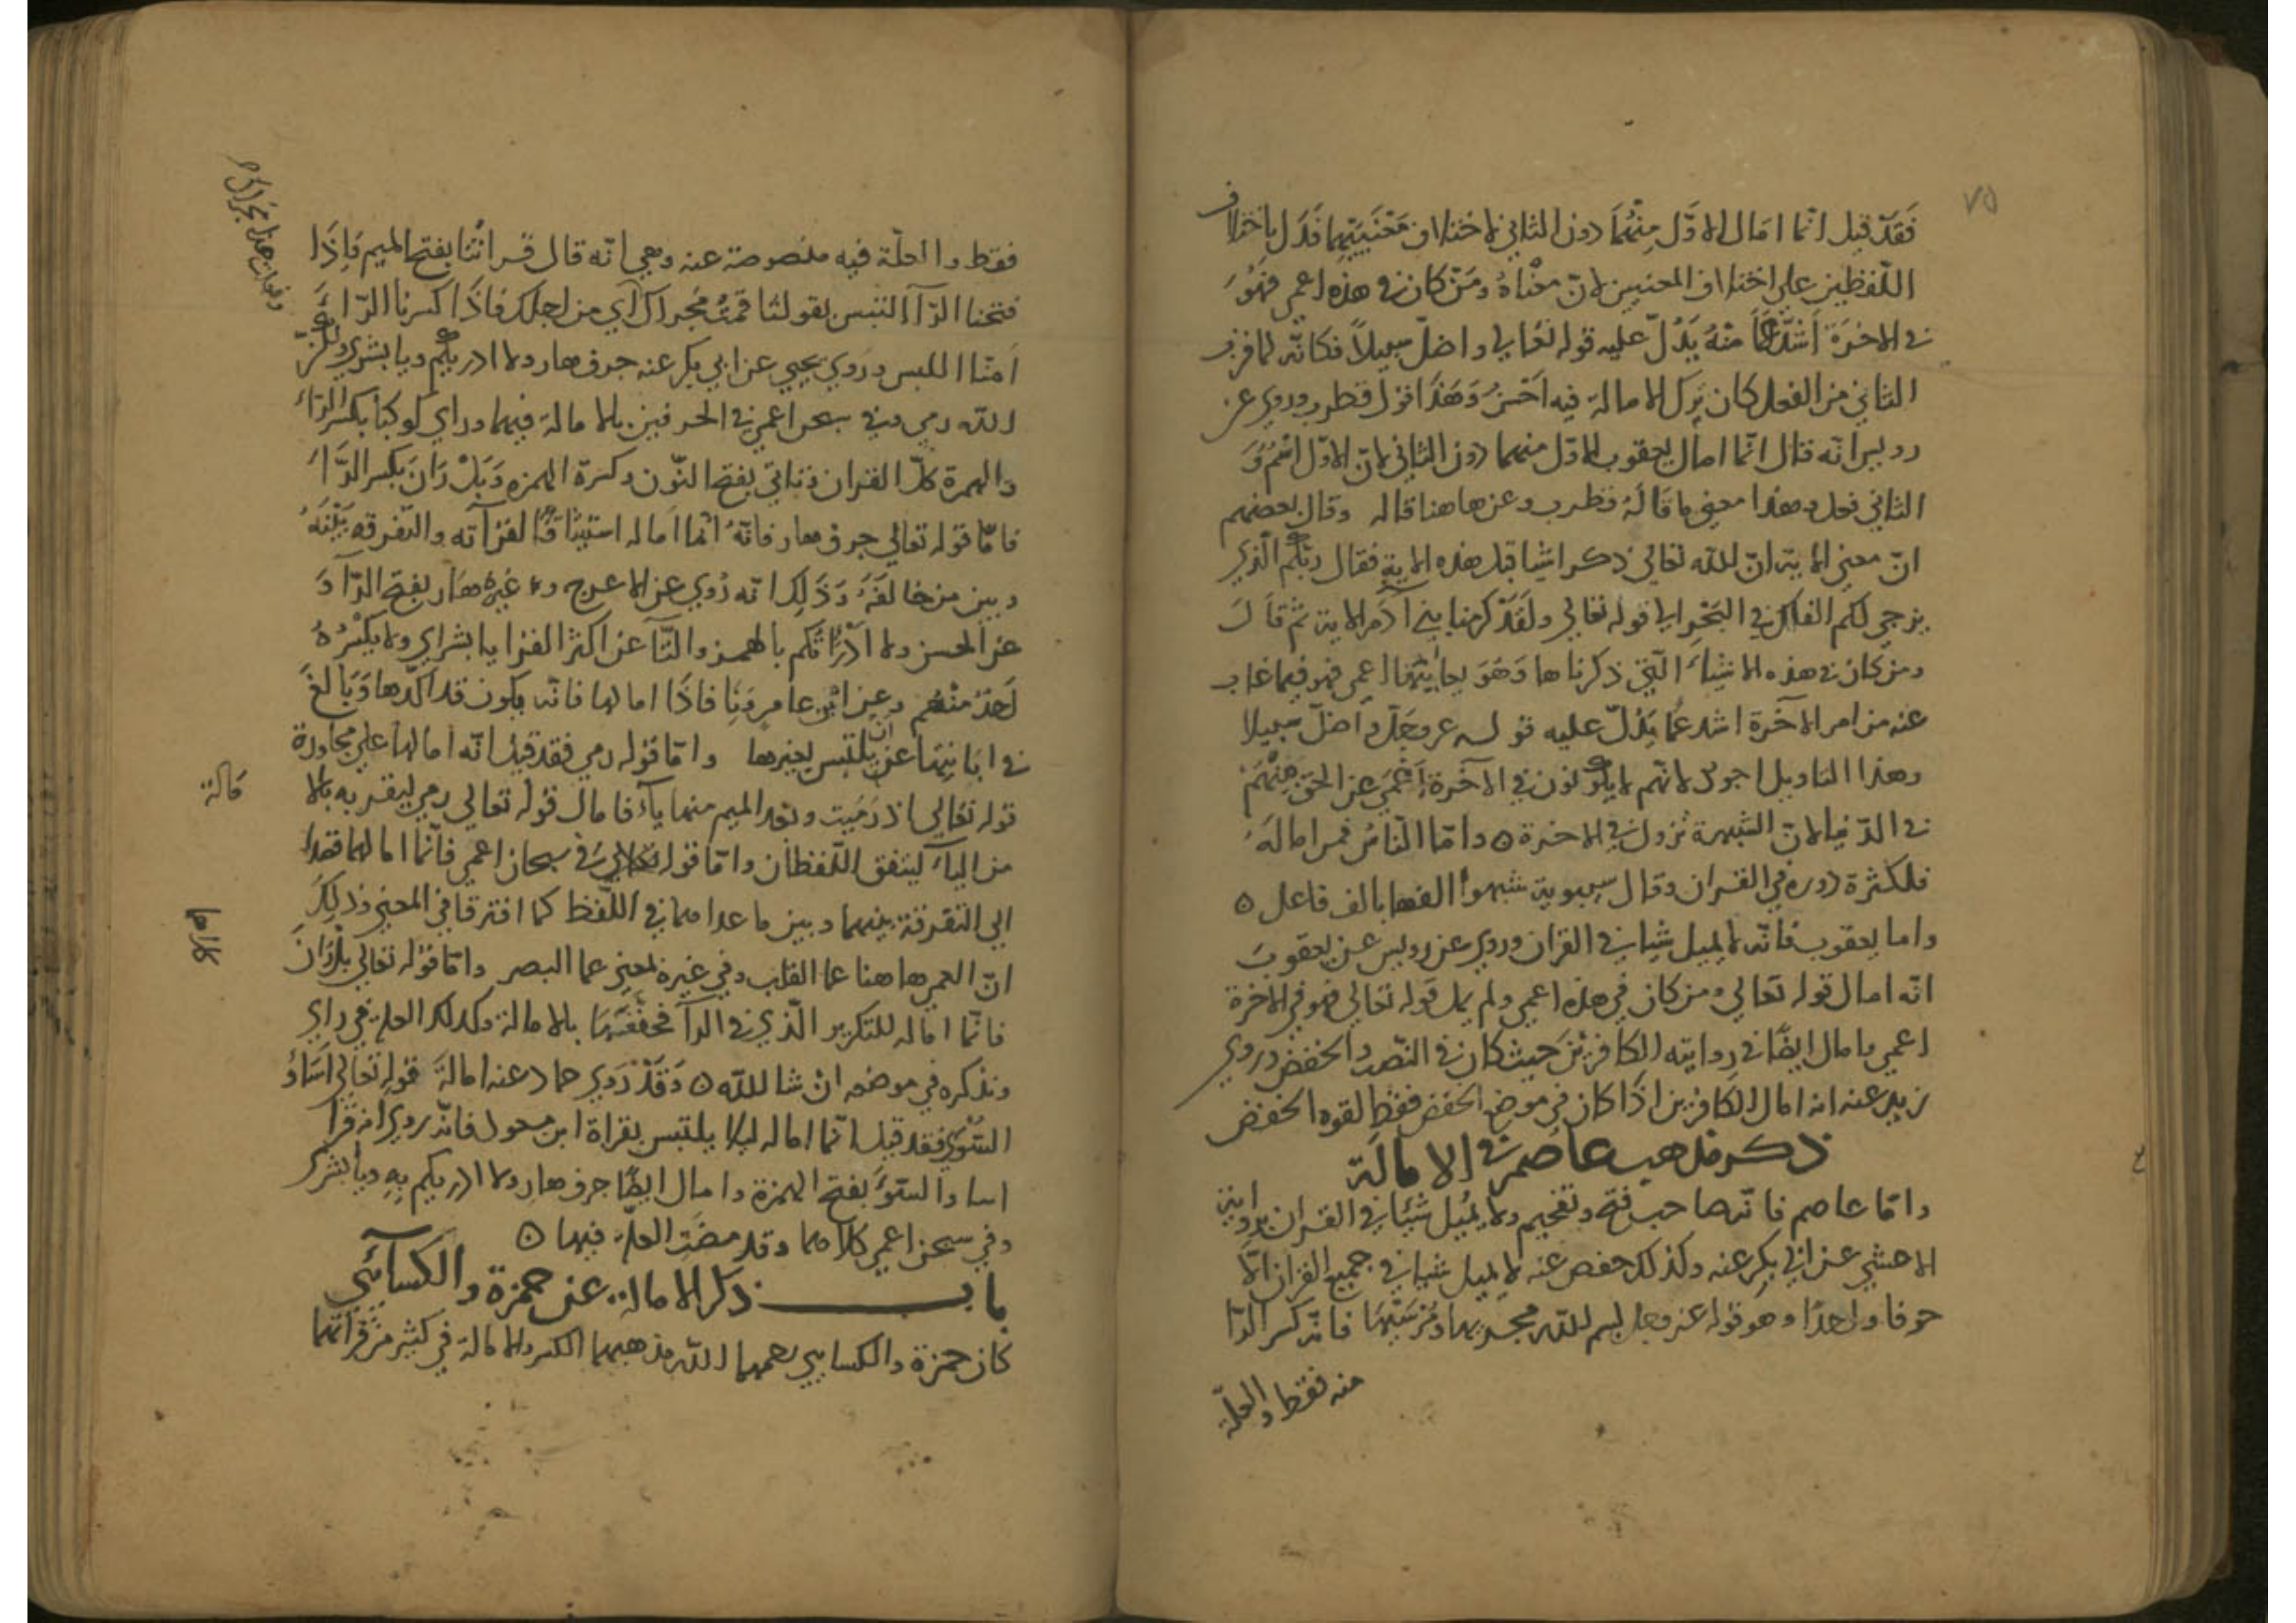 ٧٥
فَقَدْ قيل انّما امَال الاوَّل مِنْهُمَا دون الثاني لاختلاف مَعْنَيَيْهِما فَدَل باختلاف
اللّفظين على اختلاف المعنيين لانّ معْناهُ ومَنْ كان في هذه اعمى فهُوَ
في الاخرَة اَشَدُّ عَمًا منْهُ يَدُلّ عليه قوله تعَالي واضلّ سبيلاً فكانّه لما قرب
الثاني من الفعل كان تركُ الامالة فيه احْسنُ وَهَذَا قول قطرب وروي عن
رويس انّه قال انّما امال يعقوب الاوّل منهما دون الثاني لانّ الاوّل اسْمٌ وَ
الثاني فعل وهذا معنى ما قالَهُ قطرب وعن هاهنا قاله وقال بعضهم
انّ معنى الاية انّ الله تعالي ذكر اشيا قبل هذه الاية فقال ربّكم الّذي
يزجي لكم الفلك في البَحْر الي قوله تعالي ولقَدْ كرمنا بني آدَم الاية ثم قالَ
ومن كان في هذه الاشياءَ الّتي ذكرناها وَهُوَ يعاينُها اعمى فهو فيما غاب
عنه من امر الآخرة اشد عمًا يَدُلّ عليه قوله عز وجَلّ واَضلّ سبيلا
وهذا التاويل اجود لانّهم لا يكونون في الآخرة اَعْمَى عن الحق مِنْهُمْ
في الدّنيا لانّ الشبهة تزول في الاخرة ٥ وامّا النّاسُ فمن امالَهُ
فلكثرة دوره في القران وقال سيبوية شبهوا الفها بالف فاعل ٥
واما يعقوب فانّه لا يميل شيا في القران وروي عن رويس عن يعقوبَ
انّه امال قوله تعالي ومن كان في هذه اعمى ولم يمل قوله تعالي فهو في الاخرة
اعمى وامال ايضًا في روايته الكافرينَ حيث كان في النّصب والخفض وروي
زيد عنه انه امال الكافرين اذَا كان في موضع الخفض فقط لقوة الخفض
ذكر مذهب عاصم في الامالَة
وامّا عاصم فانّه صاحب فتح وتفخيم ولا يُميل شيئًا في القران برواية
الاعشي عن ابي بكر عنه وكذلك حفص عنه لا يميل شيا في جميع القران الّا
حرفا واحدًا وهو قوله عز وجل بسم الله مجريها ومُرسَيهَا فانّه كسر الرّا
منه فقط والعلّة
فقط والعلّة فيه منصوصة عنه وهي انّه قال قرانُنا بفتح الميم فاِذَا
فتحنا الرّآ التبس بقولنا قمتُ مَجراكَ اي من اجلك فاذَا كسرنا الرّاء
اَمنّا اللبس وروي يحيي عن ابي بكر عنه جرف هار ولا ادريكم ويا بشري ولكنّ
الله رمي وفي سبحن اعمي في الحرفين بالامالة فيهما وراي كوكبا بكسر الرّاء
والهمزة كلّ القران ونائي بفتح النّون وكسرة الهمزه وَبَلْ رَانَ بكسر الرَّاءَ
فامّا قوله تعالي جرف هار فانّهُ انّما اَماله استيثاقًا لقرآته والتفرقه بَيْنَهُ
وبين من خالفَهُ وَذَلِك انّه رُوي عن الاعرج وَ غيره هَار بفتح الرّآ وَ
عن الحسن ولا اَدْرَاتكم بالهمز والتّآ عن اكثر القرا يا بشراي ولا يكْسِرُهُ
اَحَدٌ منْهُم وعن ابن عامر فاذَا امالها فانّه يكون قد اكّدها وَبَالغَ
في ابَانتِها عن ان يلتبس بغيرها وامّا قوله رمي فقد قيل انّه امالها علي مجاورة
قوله تعَالي اذ رَمَيت وبَعد الميم منها يآء فامال قوله تعالي رمي ليقربه بالا
مالة
من الياءَ ليتفق اللّفظان وامّا قوله تعالي في سبحان اعمى فانّما امالهما قصدا
الي التفرقة بينهما وبين ما عداهما في اللّفظ كما افترقا في المعني وذلِكَ
كلاهما
انّ العمي هاهنا عما القلب وفي غيره لمعني عما البصر وامّا قوْله تعالي بلْ رَانَ
فانّما اماله للتكرير الّذي في الرآ فخفّفَها بالامالة وكذلك العلة في راي
ونذكره في موضعه انْ شا الله ٥ وَقَدْ رَوي حماد عنه امالةَ قوله تعالي اَسَاؤُ
السُّوي فقد قيل انّما اماله ليلا يلتبس بقراة ابن مسعود فانّه روي انّه قرا
اسا والسّوَ بفتح الهمزة وامال ايضًا جرف هار ولا ادريكم بِهِ ويا بشري
وفي سبحن اعمي كلاهما وقد مضَت العلّة فيها ٥
باب ذكر الامالة عن حمزة والكسآئي
كان حمزة والكسايي رحمهما الله مذهبهما الكسر والامالة في كثير من قراتهما